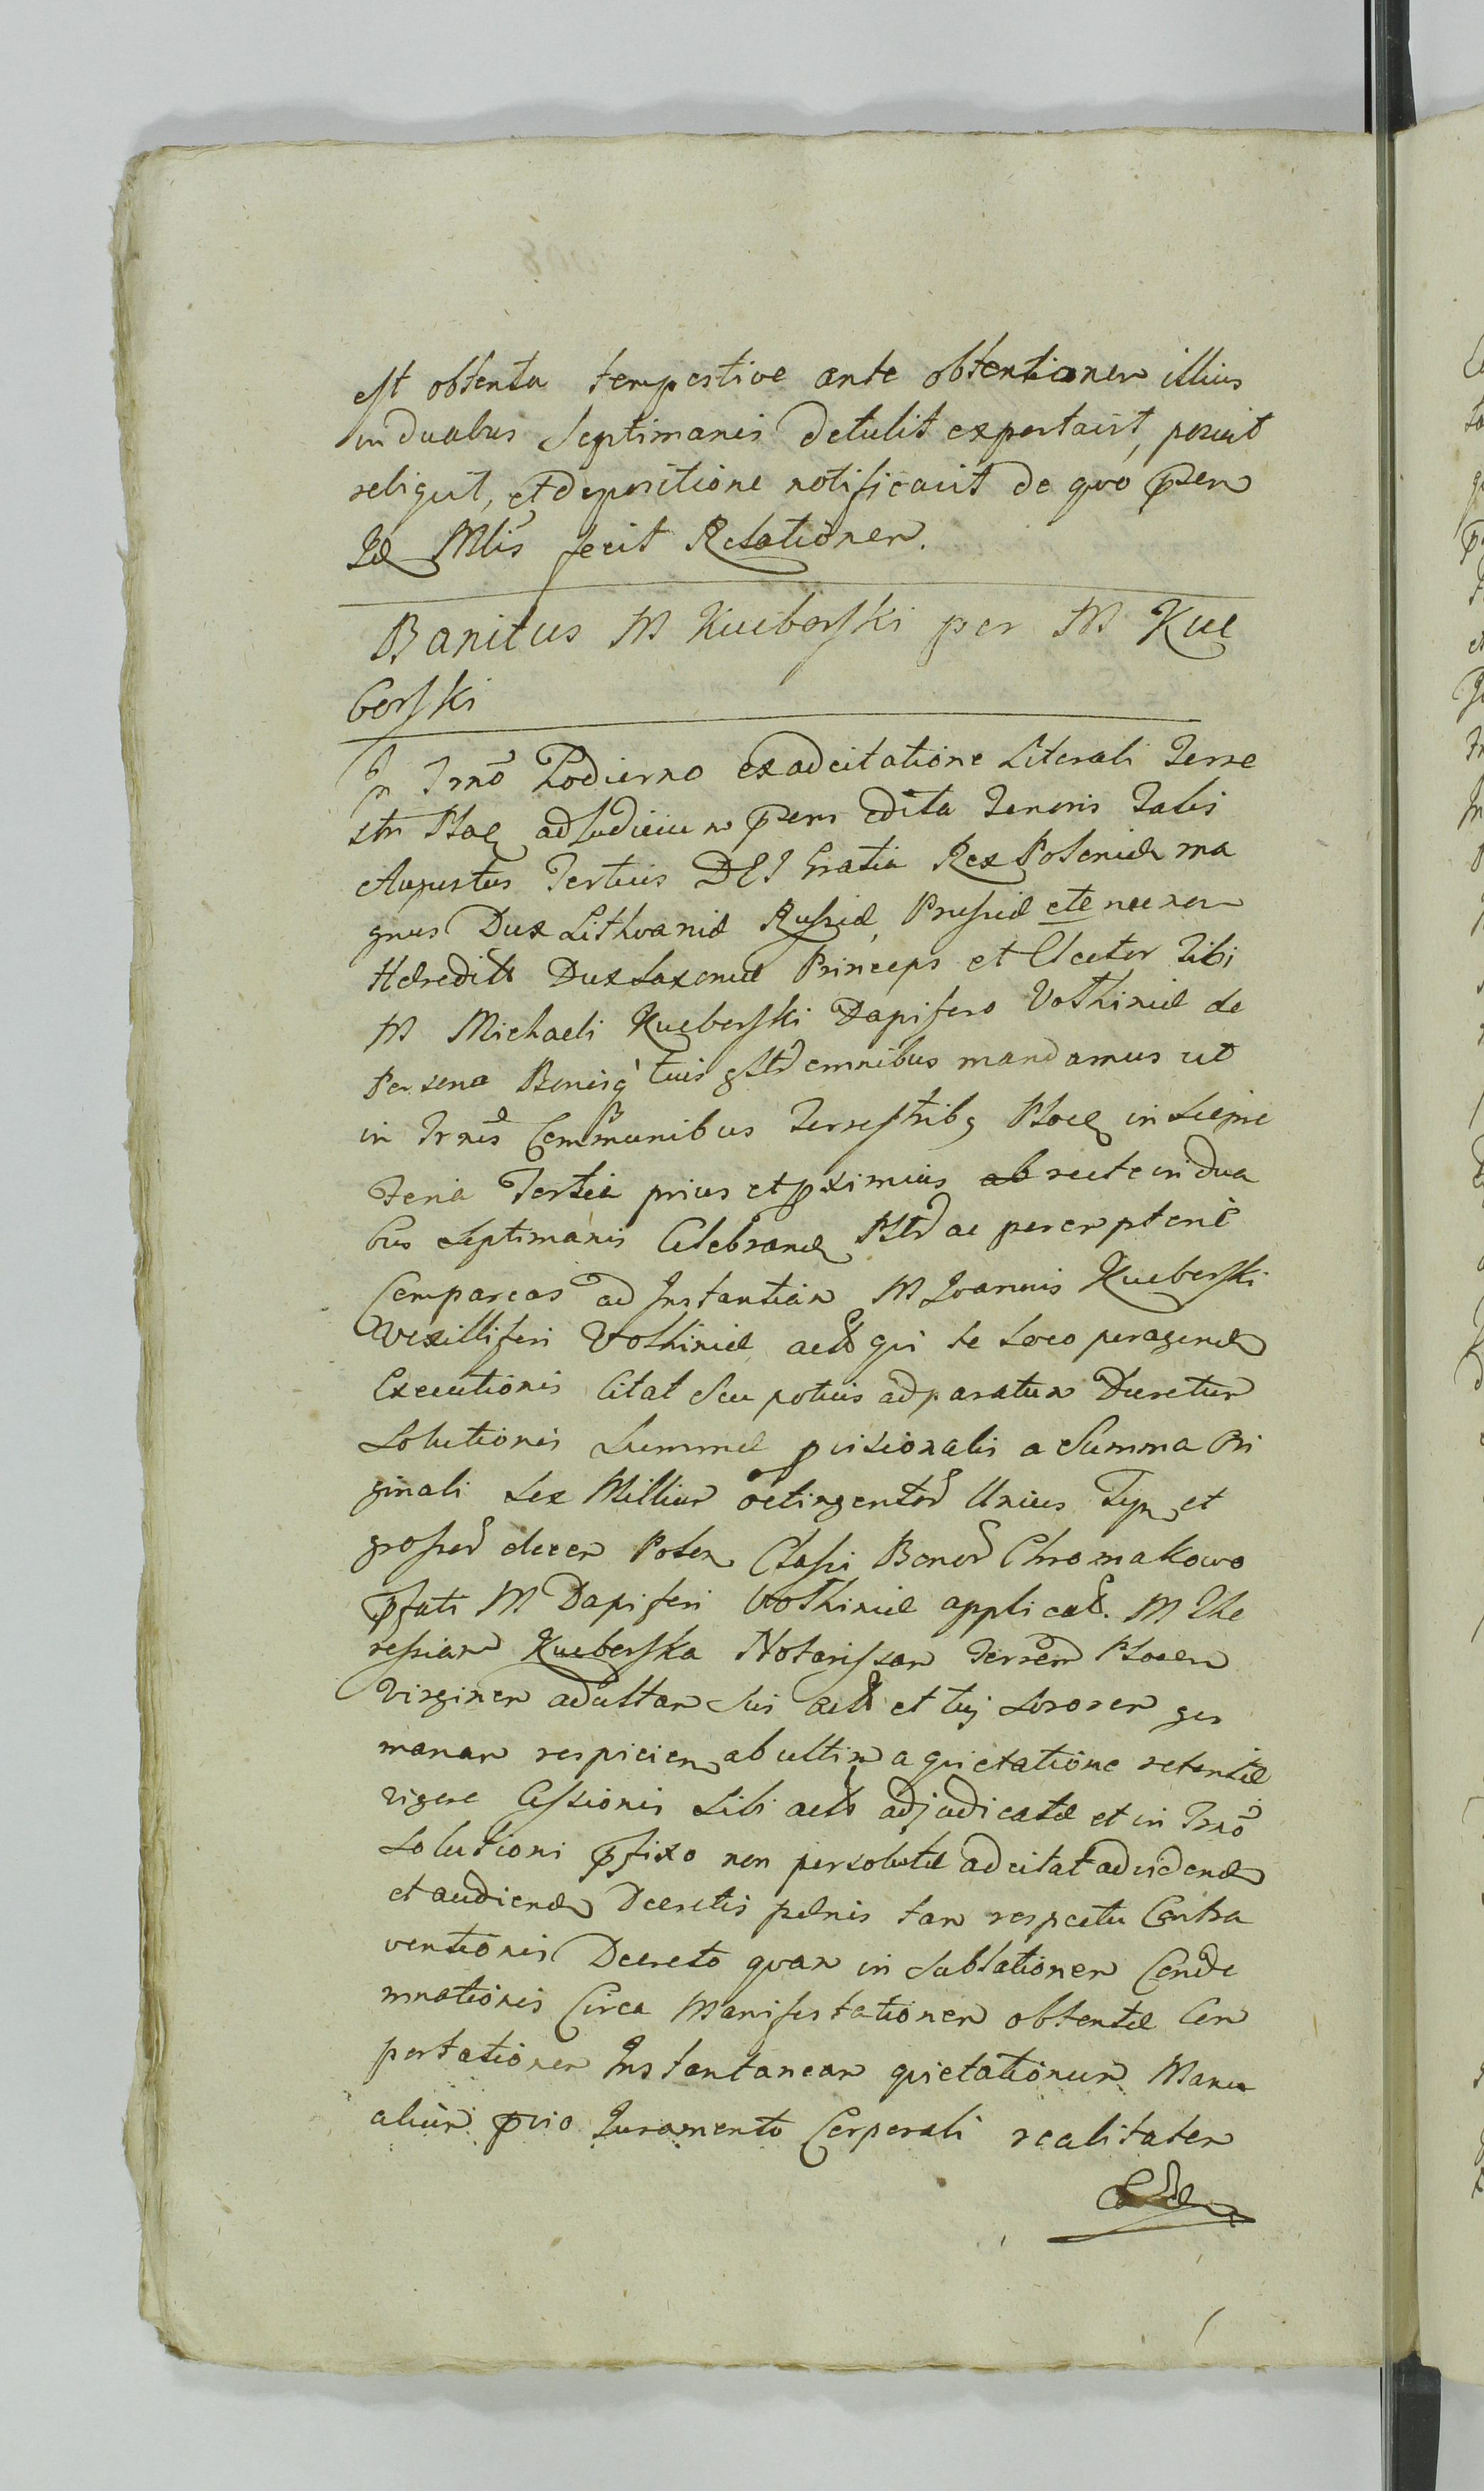 est obtenta tempestive ante obtentionem illius
in duabus Septimanis detulit exportavit, posuit
reliquit, et depositione notificavit de quo pren
Id Mlis fecit Relationem.
Banitus M Kucborski per M Kuc
borski
In Trno Hodierno ex adcitatione Literali Terre
stri Ploc ad Judicium prens edita Tenoris Talis
Augustus Tertius DEI Gratia Rex Poloniæ ma
gnus Dux Lithvaniæ Russiæ, Prussiæ etc necnon
Hæredit Dux Saxoniæ Princeps et Elector Tibi
M Michaeli Kucborski Dapifero Volhiniæ de
Persona Bonisq tuis gnlr omnibus mandamus ut
in Trnis Communibus Terrestribq Ploc in Sierpie
Feria Tertia prius et pximius ab recte in dua
bus Septimanis Celebrand Pltr ac peremptorie
Compareas ad Instantiam M Joannis Kucborski
Vexilliferi Volhiniæ act qui te loco peragend
Executionis Citat Seu potius ad paratum Ducetur
Solutionis Summæ pvisionalis a Summa Ori
ginali Sex Millium octingentor Unius Tyn et
grossor decem Polon Classi Bonor Chromakowo
pfati M Dapiferi Volhiniæ applicat. M The
ressiam Kucborska Notarissam Terren Plocen
Virginem adultam Sui act et tuj Sororem ger
manam respicien ab ultima quietatione retentæ
vigore Cessionis Sibi act adjudicatæ et in Trno
Solutioni pfixo non persolutæ ad citat ad vidend
et audiend Decretis pænis tam respectu Contra
ventionis Decreto quam in Sublationem Conde
mnationis Circa Manifestationem obtentæ Com
portationem Instantaneam quietationum Manu
alium pvio Juramento Corporali realitatem